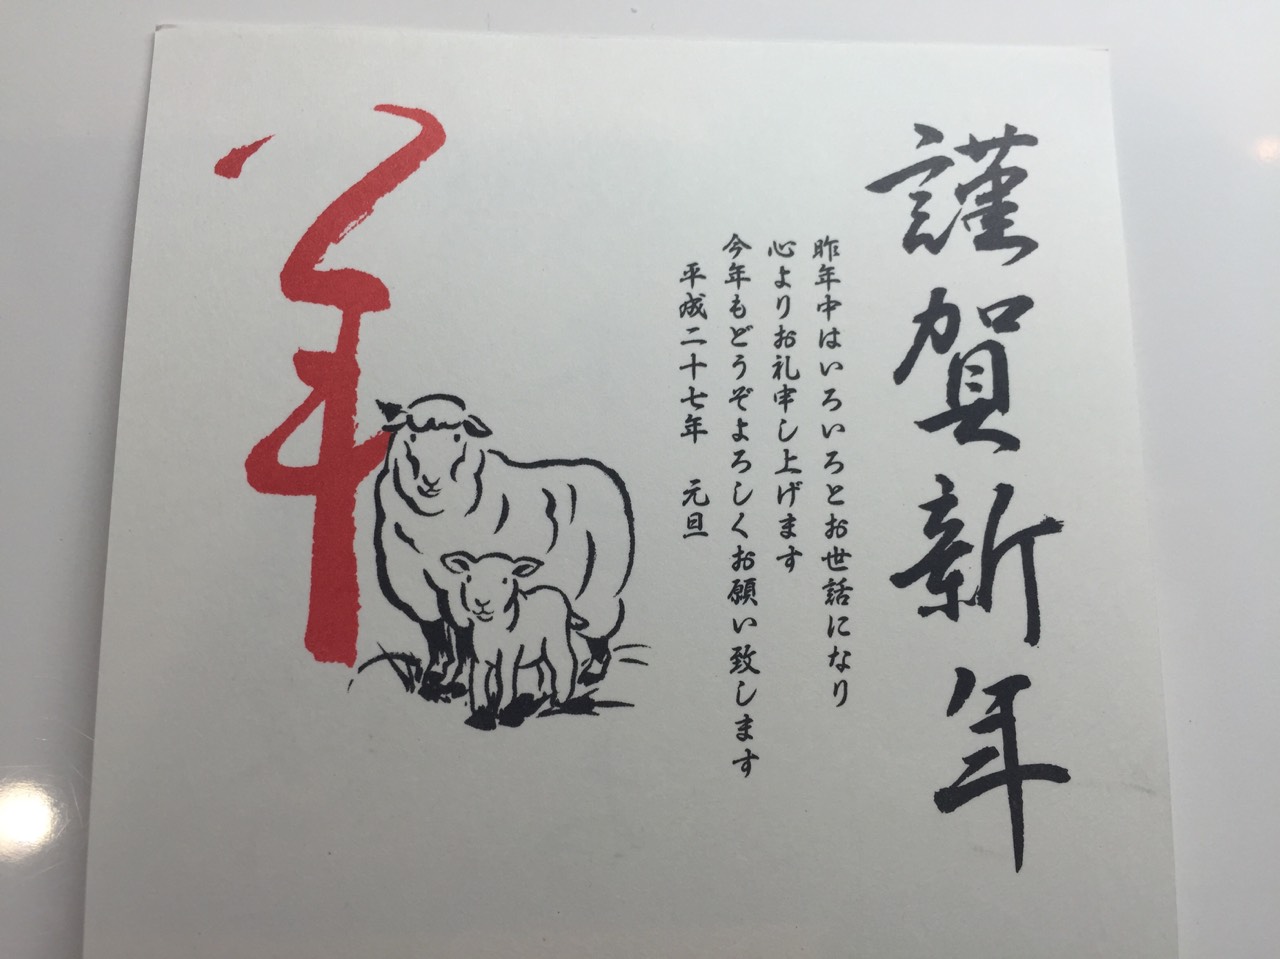 謹賀新年
昨年中はいろいろとお世話になり
心よりお礼申し上げます
今年もどうぞよろしくお願い致します
平成二十七年　元旦
羊